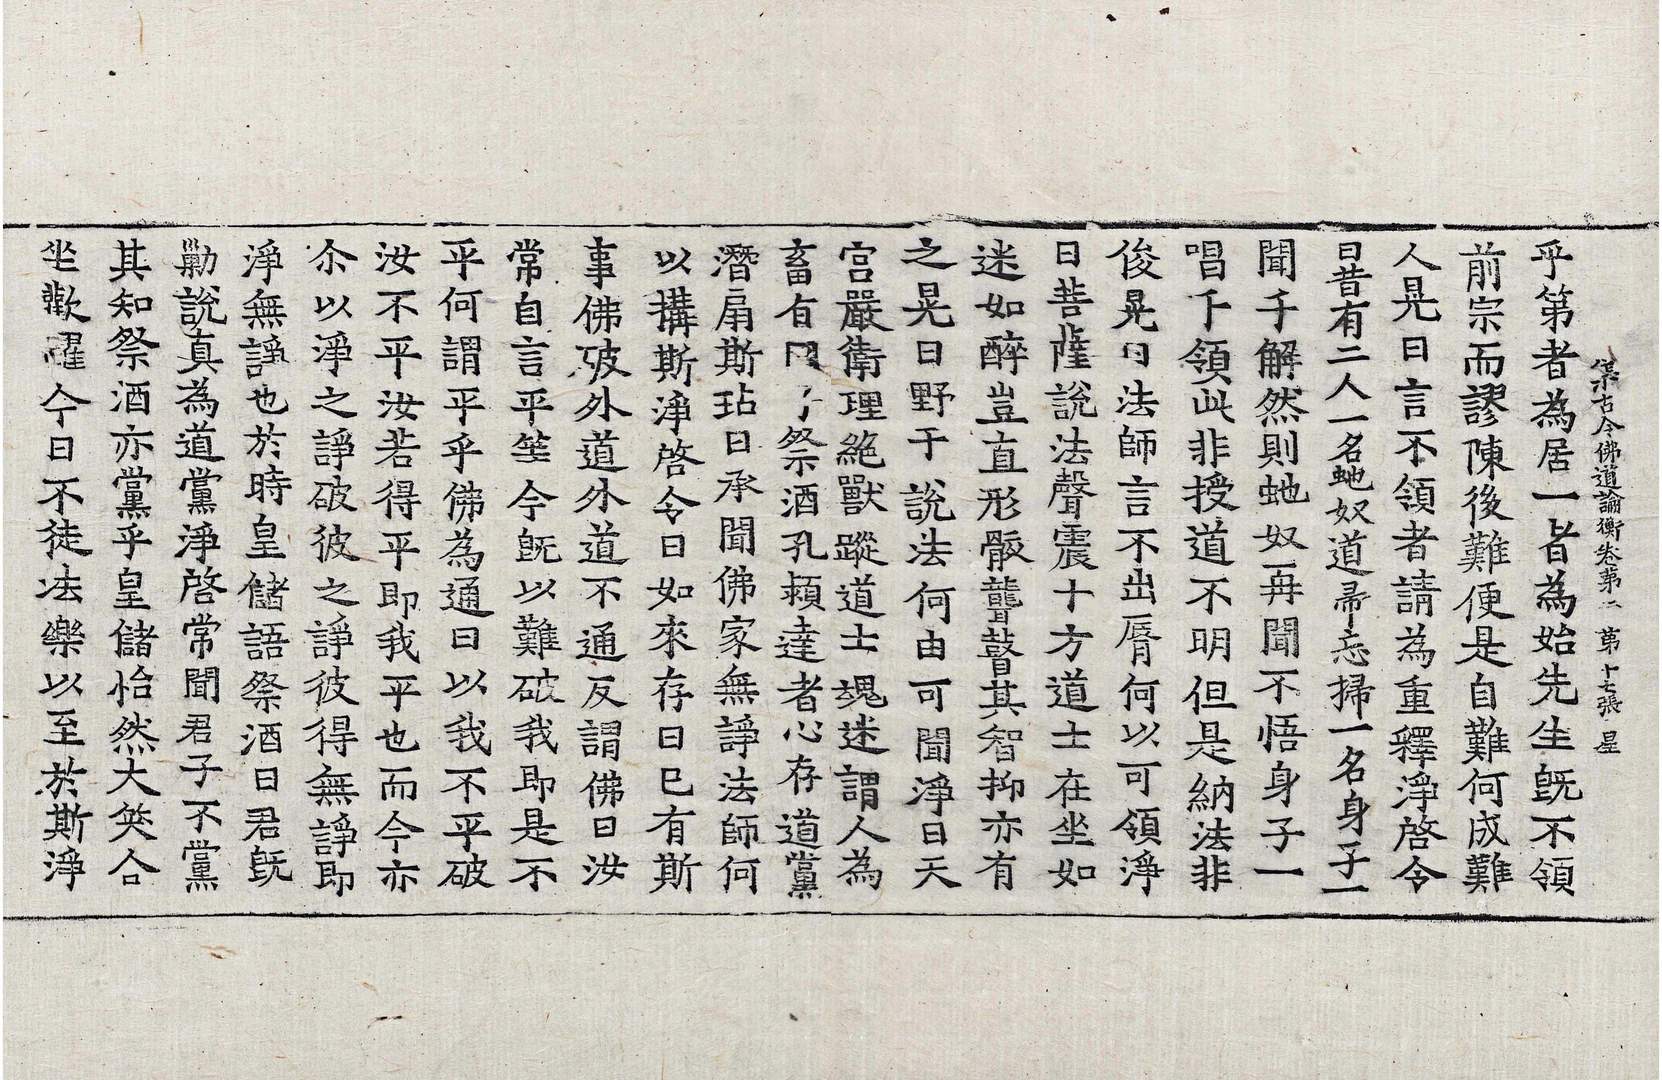 集古今佛道論衡卷第二 第十七張 星
乎第者為居一者為始先生旣不領
前宗而謬陳後難便是自難何成難
人晃曰言不領者請為重釋淨啓令
曰昔有二人一名虵奴道帚忘掃一名身子一
聞千解然則虵奴再聞不悟身子一
唱千領此非授道不明但是納法非
俊晃曰法師言不出脣何以可領淨
曰菩薩說法聲震十方道士在坐如
迷如醉豈直形骸聾瞽其智抑亦有
之晃曰野干說法何由可聞淨曰天
宮嚴衛理絕獸蹤道士魂迷謂人為
畜有 祭酒孔熲達者心存道黨
潛扇斯玷曰承聞佛家無諍法師何
以搆斯淨啓令曰如來存日已有斯
事佛破外道外道不通反謂佛曰汝
常自言平等今旣以難破我即是不
平何謂平乎佛為通曰以我不平破
汝不平汝若得平即我平也而今亦
尒以淨之諍破彼之諍彼得無諍即
淨無諍也於時皇儲語祭酒曰君旣
勦說真為道黨淨啓常聞君子不黨
其知祭酒亦黨乎皇儲怡然大笑合
坐歡躍今日不徒法樂以至於斯淨